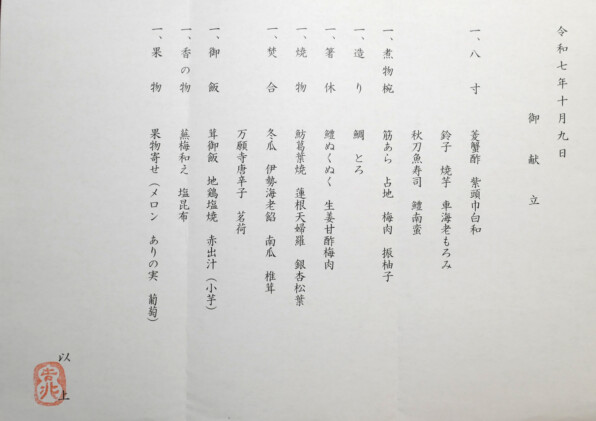 令和七年十月九日
御献立
一、八寸　菱蟹酢　紫頭巾白和
鈴子　焼芋　車海老もろみ
秋刀魚寿司　鱧南蛮
一、煮物椀　筋あら　占地　梅肉　振柚子
一、造り　鯛　とろ
一、箸休　鱧ぬくぬく　生姜甘酢梅肉
一、焼物　魴葛葉焼　蓮根天婦羅　銀杏松葉
一、焚合　冬瓜　伊勢海老餡　南瓜　椎茸
万願寺唐辛子　茗荷
一、御飯　茸御飯　地鶏塩焼　赤出汁（小芋）
一、香の物　蕪梅和え　塩昆布
一、果物　果物寄せ（メロン　ありの実　葡萄）
以上
吉兆